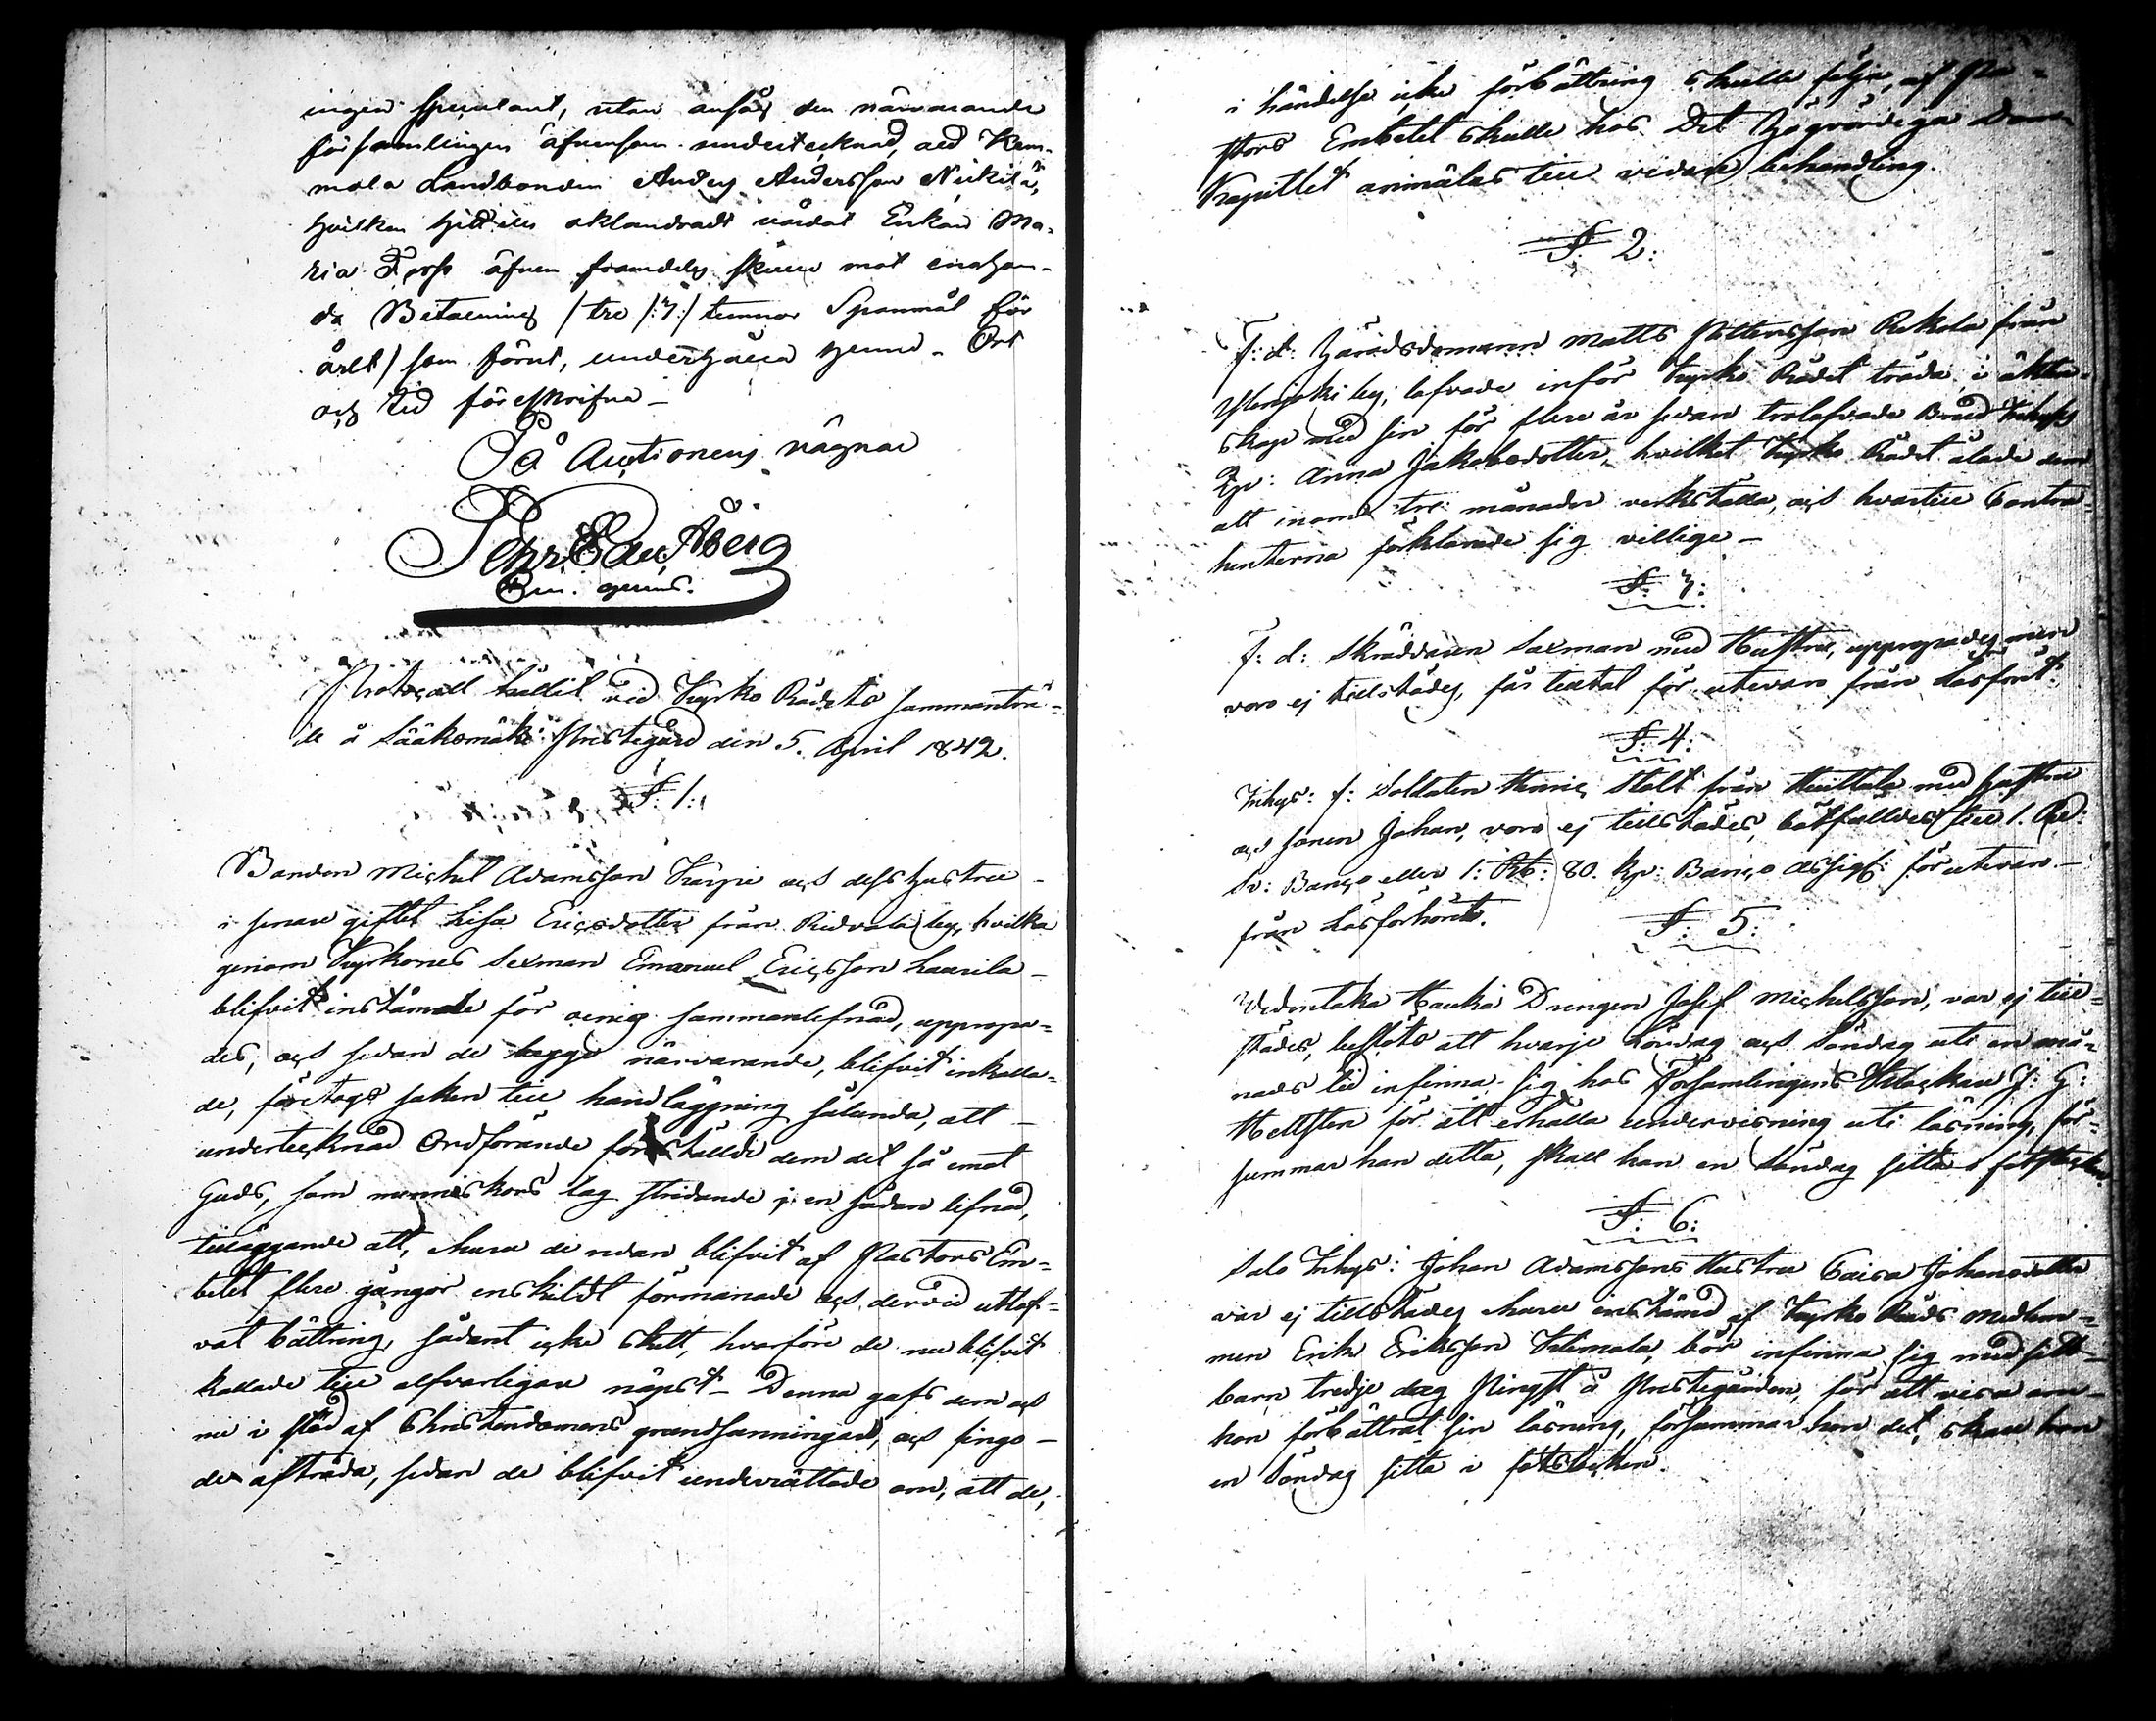 ingen speculant, utan ansåg den närvarande
församlingen äfvensom undertecknad, att Kem-
mola Landbonden Anders Andersson Nickilä,
hvilken hittills oklandradt vårdat Enkan Ma-
ria Forss äfven framdeles skulle mot enahan-
da Betalning /tre /:3:/ tunnor Spanmål för
året) som förut, underhålla henne. Ort
och tid föreskrifne –
På Auctionens vägnar
Pehr Edv. Åberg
Protocoll hållit vid Kyrko Rådets sammanträ-
de å Sääksmäki Prestegård den 5. April 1842.
§: 1:
Bonden Michel Adamsson Karpi och dess hustru –
i senare giftet Lisa Ericsdotter från Ridvala by, hvilka
genom Kyrkones Sexman Emanuel Ericsson Laurila –
blifvit instämde för oenig sammanlefnad, uppropa-
des, och sedan de begge närvarande, blifvit inkalla-
de, företogs saken till handläggning sålunda, att –
undertecknad Ordförande förestälde dem det så emot
Guds, som menniskors lag stridande i en sådan lefnad,
tilläggande att, ehuru de redan blifvit af Pastors Em-
betet flere gångor enskildt förmanade och dervid utlof-
vat bättring, sådant icke skett, hvarföre de nu blifvit
kallade till alfvarligare näpst – Denna gafs dem och
nu i stöd af Christendomens grundsanningar, och fingo –
de afträda, sedan de blifvit underrättade om, att de,
i händelse icke förbättring skulle följa, af Pa-
stors Embetet skulle hos Det Högvördiga Dom
Kapitlet anmälas till vidare behandling.
§: 2:
F: d: Häradsdomaren Matts Pettersson Rekola från
by, lofvade inför Kyrko Rådet träda i ächten-
skap med sin för flere år sedan trolofvade Brud Inhyses
Anna Jakobsdotter, hvilket Kyrko Rådet ålade dem
att inom tre månader verkställa, och hvartill Contra-
henterna förklarade sig villige –
§: 3:
F: d: Skräddaren Saxman med Hustru, uppropades men
voro ej tillstädes, får tilltal för utevaro från Läsförh.
§: 4:
Inhys: f: Soldaten Stolt från Huittula med hustru
och sonen Johan, voro ej tillstädes, bötfälldes till 1. Rd:
Sv: Banco eller 1: Rb: 80. kp: Banco Assign: för utevaro –
från Läsförhöret.
§: 5:
Uedentaka Hauki Drengen Josef Michelsson, var ej till-
städes, beslöts att hvarje Lördag och Söndag uti en må-
nads tid infinna sig hos Församlingens Klockare J: G:
Hellsten för att erhålla undervisning uti läsning, för-
summar han detta, skall han en söndag sitta i fotstocken
§: 6:
Salo Inhys: Johan Adamssons Hustru Caisa Johansdotter
var ej tillstädes ehuru instämd af Kyrko Råds medlem-
men Erik Eriksson Klemola, bör infinna sig med sitt –
barn tredje dag Pingst å Prestegården, för att visa om –
hon förbättrat sin läsning, försummar hon det, skall hon
en söndag sitta i fotstocken.